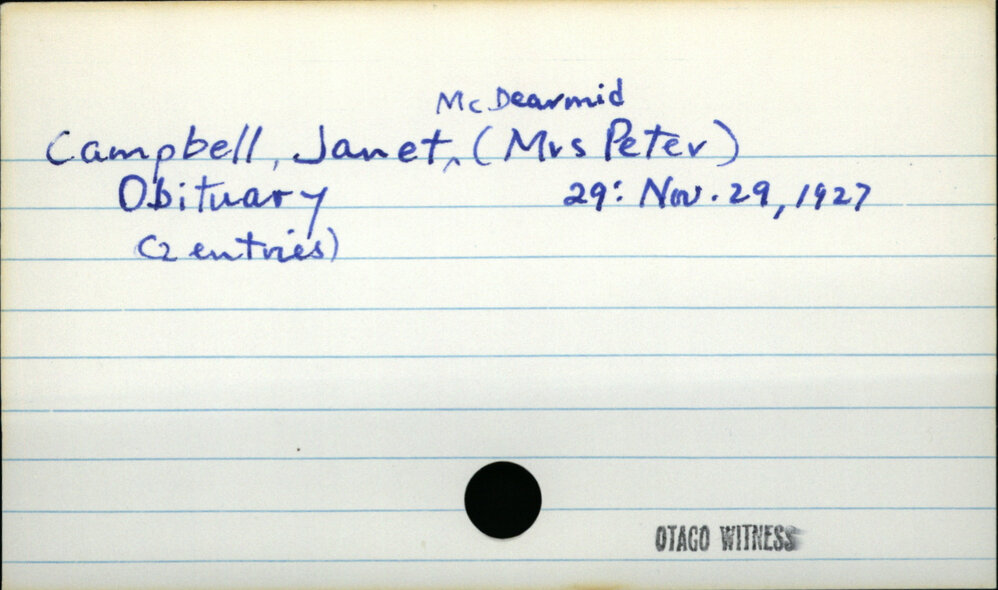 McDearmid
Campbell, Janet, ^ (Mrs Peter)
Obituary 29: Nov. 29, 1927
(2 entries)
OTAGO WITNESS